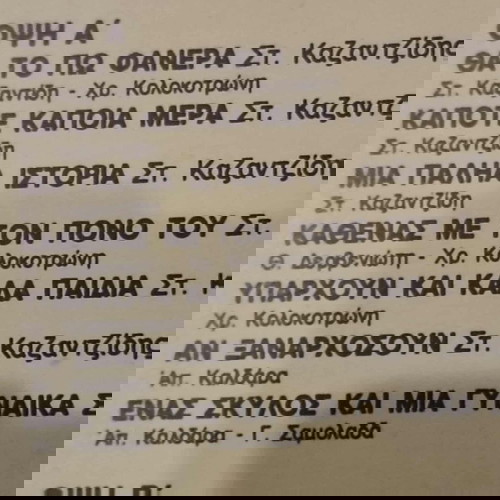 ΟΨΗ Α΄
ΘΑ ΤΟ ΠΩ ΦΑΝΕΡΑ Στ. Καζαντζίδης
Στ. Καζαντζίδη - Χρ. Κολοκοτρώνη
ΚΑΠΟΤΕ ΚΑΠΟΙΑ ΜΕΡΑ Στ. Καζαντζ
Στ. Καζαντζίδη
ΜΙΑ ΠΑΛΗΑ ΙΣΤΟΡΙΑ Στ. Καζαντζίδη
Στ. Καζαντζίδη
ΚΑΘΕΝΑΣ ΜΕ ΤΟΝ ΠΟΝΟ ΤΟΥ Στ.
Θ. Δερβενιώτη - Χρ. Κολοκοτρώνη
ΥΠΑΡΧΟΥΝ ΚΑΙ ΚΑΛΑ ΠΑΙΔΙΑ Στ. Κ
Χρ. Κολοκοτρώνη
ΑΝ ΞΑΝΑΡΧΟΣΟΥΝ Στ. Καζαντζίδης
Ἀπ. Καλδάρα
ΕΝΑΣ ΣΚΥΛΟΣ ΚΑΙ ΜΙΑ ΓΥΝΑΙΚΑ Σ
Ἀπ. Καλδάρα - Γ. Σαμολαδά